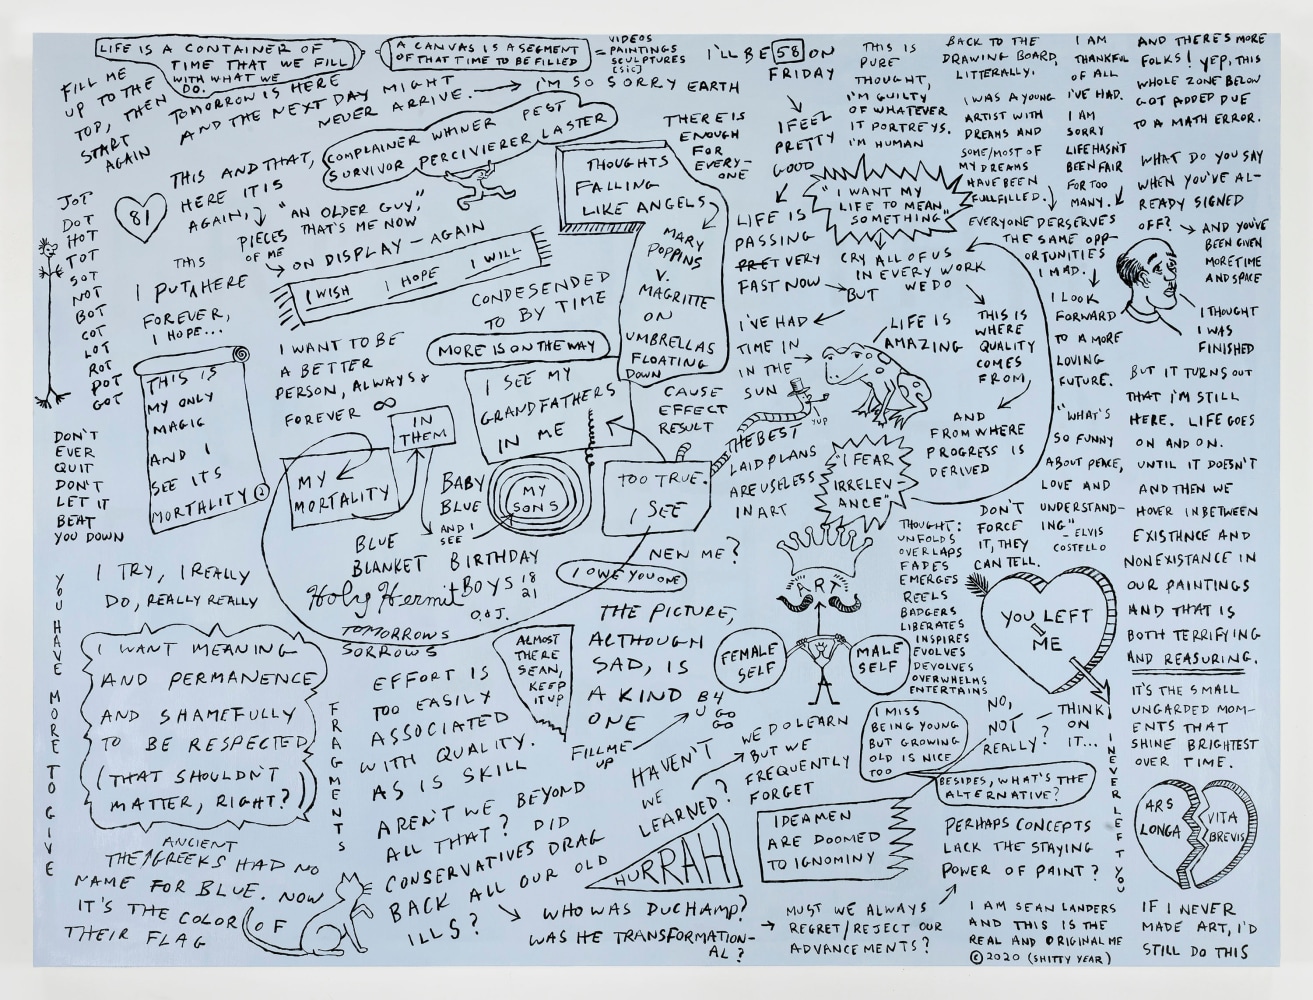 LIFE IS A CONTAINER OF
TIME THAT WE FILL
WITH WHAT WE
DO.
A CANVAS IS A SEGMENT
OF THAT TIME TO BE FILLED
= VIDEOS
PAINTINGS
SCULPTURES
[SIC]
FILL ME
UP TO THE
TOP, THEN
START
AGAIN
TOMORROW IS HERE
AND THE NEXT DAY MIGHT
NEVER ARRIVE.
I'M SO SORRY EARTH
COMPLAINER WHINER PEST
SURVIVOR PERCIVIERER LASTER
THIS AND THAT,
HERE IT IS
AGAIN,
PIECES
OF ME
81
"AN OLDER GUY,"
THAT'S ME NOW
ON DISPLAY - AGAIN
I WISH I HOPE I WILL
CONDESENDED
TO BY TIME
JOT
DOT
HOT
TOT
SOT
NOT
BOT
COT
LOT
ROT
POT
GOT
DON'T
EVER
QUIT
DON'T
LET IT
BEAT
YOU DOWN
THIS
I PUT HERE
FOREVER,
I HOPE...
THIS IS
MY ONLY
MAGIC
AND I
SEE ITS
MORTALITY
I WANT TO BE
A BETTER
PERSON, ALWAYS &
FOREVER ∞
MORE IS ON THE WAY
IN
THEM
MY
MORTALITY
I SEE MY
GRANDFATHERS
IN ME
BABY
BLUE
AND I
SEE
MY
SONS
TOO TRUE.
I SEE
BLUE
BLANKET BIRTHDAY
BOYS 18
21
Holy Hermit
O.d J.
TOMORROWS
SORROWS
I OWE YOU ONE
NEN ME?
THOUGHTS
FALLING
LIKE ANGELS
MARY
POPPINS
V.
MAGRITTE
ON
UMBRELLAS
FLOATING
DOWN
CAUSE
EFFECT
RESULT
THERE IS
ENOUGH
FOR
EVERY-
ONE
I'LL BE 58 ON
FRIDAY
I FEEL
PRETTY
GOOD
LIFE IS
PASSING
PRET VERY
FAST NOW
BUT
I'VE HAD
TIME IN
IN THE
SUN
YUP
THE BEST
LAID PLANS
ARE USELESS
IN ART
THIS IS
PURE
THOUGHT,
I'M GUILTY
OF WHATEVER
IT PORTREYS.
I'M HUMAN
"I WANT MY
LIFE TO MEAN
SOMETHING"
CRY ALL OF US
IN EVERY WORK
WE DO
LIFE IS
AMAZING
THIS IS
WHERE
QUALITY
COMES
FROM,
AND
FROM WHERE
PROGRESS IS
DERIVED
"I FEAR
IRRELEV-
ANCE"
BACK TO THE
DRAWING BOARD,
LITTERALLY.
I WAS A YOUNG
ARTIST WITH
DREAMS AND
SOME/MOST OF
MY DREAMS
HAVE BEEN
FULLFILLED.
I AM
THANKFUL
OF ALL
I'VE HAD.
I AM
SORRY
LIFE HASN'T
BEEN FAIR
FOR TOO
MANY.
EVERYONE DERSERVES
THE SAME OPP-
ORTUNITIES
I HAD.
I LOOK
FORWARD
TO A MORE
LOVING
FUTURE.
"WHAT'S
SO FUNNY
ABOUT PEACE,
LOVE AND
UNDERSTAND-
ING"
- ELVIS
COSTELLO
DON'T
FORCE
IT, THEY
CAN TELL.
AND THERE'S MORE
FOLKS! YEP, THIS
WHOLE ZONE BELOW
GOT ADDED DUE
TO A MATH ERROR.
WHAT DO YOU SAY
WHEN YOU'VE AL-
READY SIGNED
OFF?
AND YOU'VE
BEEN GIVEN
MORE TIME
AND SPACE
I THOUGHT
I WAS
FINISHED
BUT IT TURNS OUT
THAT I'M STILL
HERE. LIFE GOES
ON AND ON.
UNTIL IT DOESN'T
AND THEN WE
HOVER IN BETWEEN
EXISTHNCE AND
NONEXISTANCE IN
OUR PAINTINGS
AND THAT IS
BOTH TERRIFYING
AND REASURING.
IT'S THE SMALL
UNGARDED MOM-
ENTS THAT
SHINE BRIGHTEST
OVER TIME.
ARS
LONGA
VITA
BREVIS
IF I NEVER
MADE ART, I'D
STILL DO THIS
I TRY, I REALLY
DO, REALLY REALLY
YOU HAVE MORE TO GIVE
I WANT MEANING
AND PERMANENCE
AND SHAMEFULLY
TO BE RESPECTED
(THAT SHOULDN'T
MATTER, RIGHT?)
FRAGMENTS
ANCIENT
THE GREEKS HAD NO
NAME FOR BLUE. NOW
IT'S THE COLOR OF
THEIR FLAG
EFFORT IS
TOO EASILY
ASSOCIATED
WITH QUALITY.
AS IS SKILL
AREN'T WE BEYOND
ALL THAT? DID
CONSERVATIVES DRAG
BACK ALL OUR OLD
ILLS?
ALMOST
THERE
SEAN,
KEEP
IT UP
THE PICTURE,
ALTHOUGH
SAD, IS
A KIND
ONE
B4
U GO
GO
FILL ME
UP
HAVEN'T
WE
LEARNED?
WE DO LEARN
BUT WE
FREQUENTLY
FORGET
HURRAH
WHO WAS DUCHAMP?
WAS HE TRANSFORMATION-
AL?
MUST WE ALWAYS
REGRET/REJECT OUR
ADVANCEMENTS?
ART
FEMALE
SELF
MALE
SELF
THOUGHT:
UNFOLDS
OVERLAPS
FADES
EMERGES
REELS
BADGERS
LIBERATES
INSPIRES
EVOLVES
DEVOLVES
OVERWHELMS
ENTERTAINS
YOU LEFT
ME
NO,
NOT
REALLY?
THINK
ON
IT...
I NEVER LEFT YOU
I MISS
BEING YOUNG
BUT GROWING
OLD IS NICE
TOO
BESIDES, WHAT'S THE
ALTERNATIVE?
IDEAMEN
ARE DOOMED
TO IGNOMINY
PERHAPS CONCEPTS
LACK THE STAYING
POWER OF PAINT?
I AM SEAN LANDERS
AND THIS IS THE
REAL AND ORIGINAL ME
© 2020 (SHITTY YEAR)